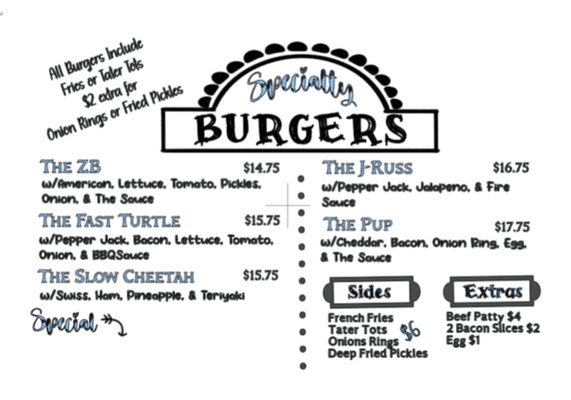 All Burgers Include
Fries or Tater Tots
$2 extra for
Onion Rings or Fried Pickles
Specialty
BURGERS
THE ZB $14.75
w/American, Lettuce, Tomato, Pickles,
Onion, & The Sauce
THE FAST TURTLE $15.75
w/Pepper Jack, Bacon, Lettuce, Tomato,
Onion, & BBQSauce
THE SLOW CHEETAH $15.75
w/Swiss, Ham, Pineapple, & Teriyaki
Special
THE J-RUSS $16.75
w/Pepper Jack, Jalapeno, & Fire
Sauce
THE PUP $17.75
w/Cheddar, Bacon, Onion Ring, Egg,
& The Sauce
Sides
French Fries
Tater Tots
Onions Rings
Deep Fried Pickles
$6
Extras
Beef Patty $4
2 Bacon Slices $2
Egg $1